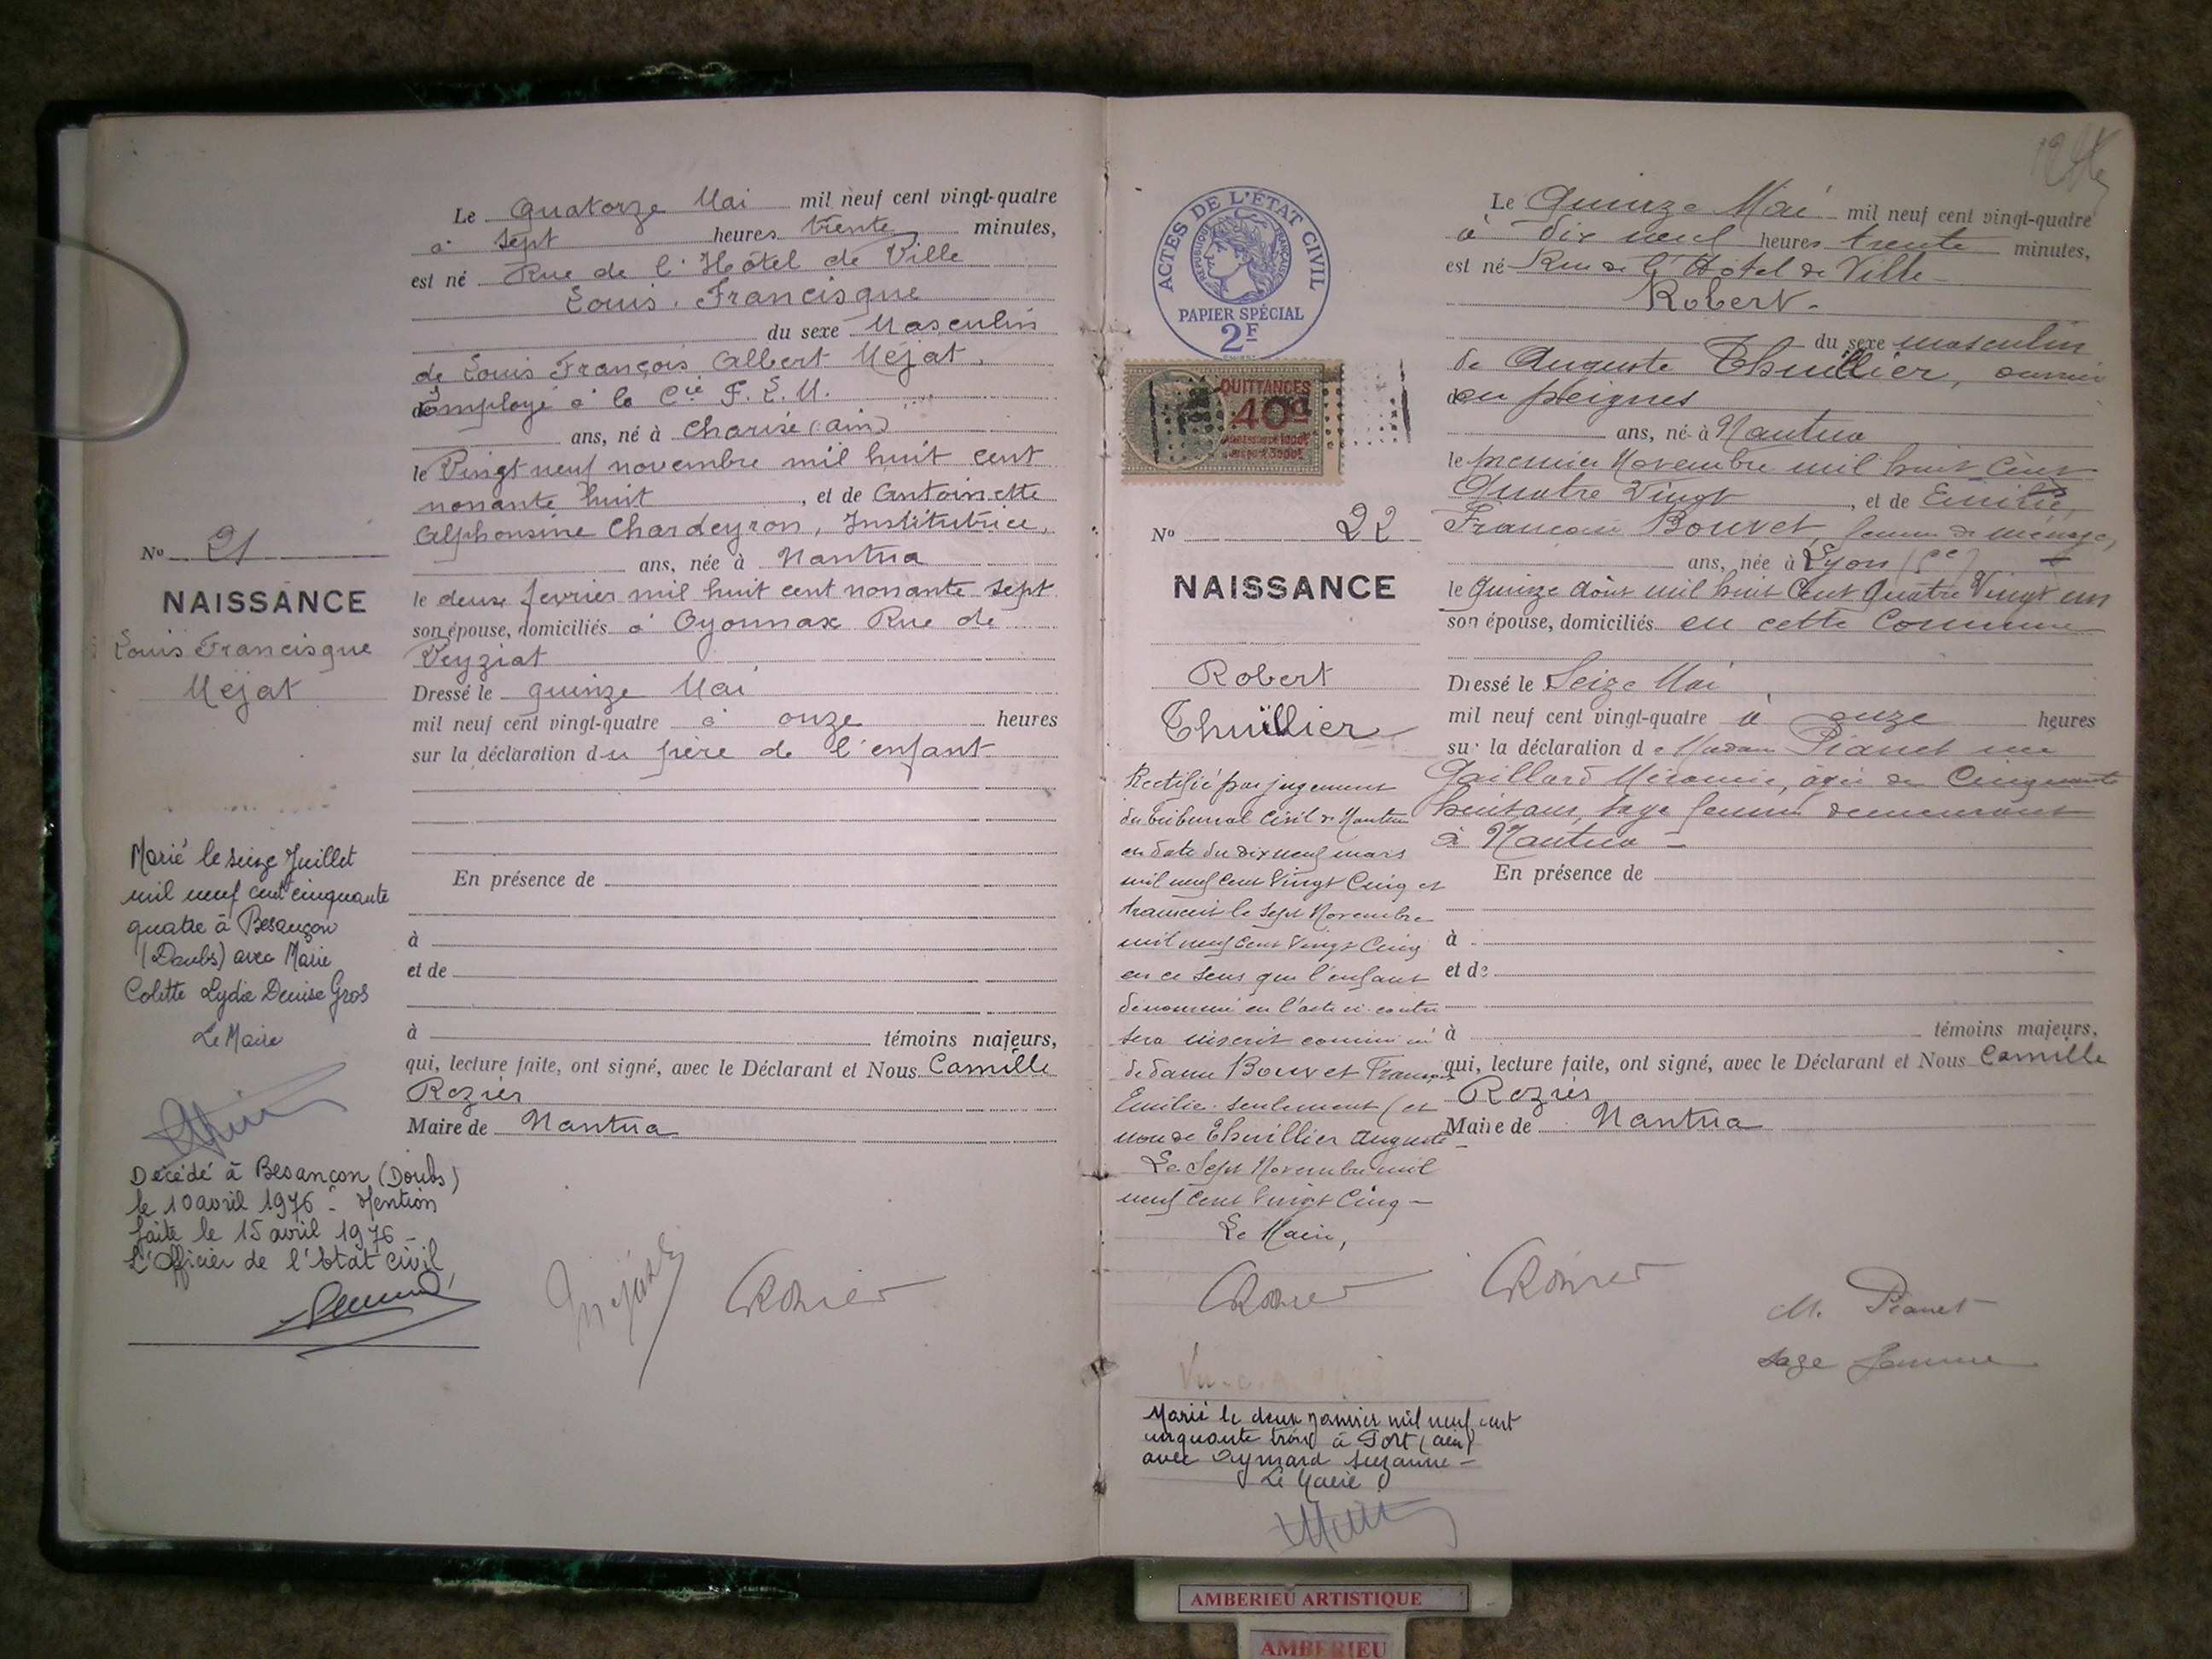 Le Quatorze Mai mil neuf cent vingt-quatre
à sept heures trente minutes,
est né Rue de l'Hôtel de Ville
Louis Francisque
du sexe Masculin
de Louis François Albert Méjat,
employé à la Cie F. E. M.
ans, né à Charix (ain)
le Vingt neuf novembre mil huit cent
nonante huit, et de Antoinette
Alphonsine Chardeyron, Institutrice,
ans, née à Nantua
le deux fevrier mil huit cent nonante sept
son épouse, domiciliés à Oyonnax Rue de
Veyziat
Dressé le quinze Mai
mil neuf cent vingt-quatre à onze heures
sur la déclaration du père de l'enfant
En présence de
à
et de
à témoins majeurs,
qui, lecture faite, ont signé, avec le Déclarant et Nous Camille
Rozier
Maire de Nantua
Nº 21
NAISSANCE
Louis Francisque
Méjat
Marié le seize Juillet
mil neuf cent cinquante
quatre à Besançon
(Doubs) avec Marie
Colette Lydie Denise Gros
Le Maire
Décédé à Besançon (Doubs)
le 10 avril 1976 - Mention
faite le 15 avril 1976 -
L'Officier de l'Etat civil,
Méjat
CRozier
ACTES DE L'ÉTAT CIVIL
RÉPUBLIQUE FRANÇAISE
PAPIER SPÉCIAL
2F
QUITTANCES
40c
Nº 22
NAISSANCE
Robert
Thuillier
Rectifié par jugement
du tribunal Civil de Nantua
en date du dix neuf mars
mil neuf cent Vingt Cinq et
transcrit le Sept Novembre
mil neuf cent Vingt Cinq
en ce sens que l'enfant
dénommé en l'acte ci-contre
sera inscrit comme né
de dame Bouvet Françoise
Emilie seulement (et
non de Thuillier Auguste
Le Sept Novembre mil
neuf Cent Vingt Cinq -
Le Maire,
CRozier
Marié le deux janvier mil neuf cent
cinquante trois à Port (ain)
avec Aymard Suzanne -
Le Maire
Le Quinze Mai mil neuf cent vingt-quatre
à Dix neuf heures trente minutes,
est né Rue de l'Hôtel de Ville
Robert -
du sexe masculin
de Auguste Thuillier, ouvrier
en peignes
ans, né à Nantua
le premier Novembre mil huit Cent
Quatre Vingt, et de Emilie,
Françoise Bouvet, femme de ménage,
ans, née à Lyon
le Quinze Août mil huit Cent Quatre Vingt un
son épouse, domiciliés en cette Commune
Dressé le Seize Mai
mil neuf cent vingt-quatre à onze heures
sur la déclaration de Madame Pianet née
Gaillard, âgée de Cinquante
huit ans, sage femme demeurant
à Nantua -
En présence de
à
et de
à témoins majeurs,
qui, lecture faite, ont signé, avec le Déclarant et Nous Camille
Rozier
Maire de Nantua
CRozier
M. Pianet
sage femme
AMBERIEU ARTISTIQUE
AMBERIEU